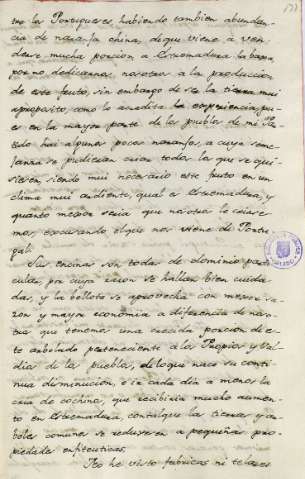 mo la Portugueses, habiendo tambien abundan-
cia de naranja china, de que viene á ven
derse mucha porcion á Extremadura
por no dedicarnos nosotros a la produccion
de este fruto, sin embargo de ser la tierra mui
aproposito, como lo acredita la experiencia pu-
es en la mayor parte de los pueblos de mi Par-
tido hai algunos pocos naranjos, a cuya seme-
janza se pudieran criar todos los que se qui-
sieren, siendo mui necesario este fruto en un
clima mui ardiente, qual es Extremadura, y
quanto mejor seria que nosotros lo criase-
mos, escusando el que nos viene de Portu-
gal.
Sus encinas son todas de dominio parti
cular, por cuya razon se hallan bien cuida-
das, y la bellota se aprovecha con mejor sa-
zon y mayor economia á diferencia de noso-
tros que tenemos una crecida porcion de es-
te arbolado perteneciente a los Propios y Val-
dios de los pueblos, de lo que nace su conti-
nua disminucion, y ir cada dia a menos la
cria de cochinos, que recibiria mucho aumen-
to en Estremadura, con tal que las tierras y ar-
boles comunes se reduxesen a pequeñas pro-
piedades enfiteuticas.
No he visto fabricas ni telares